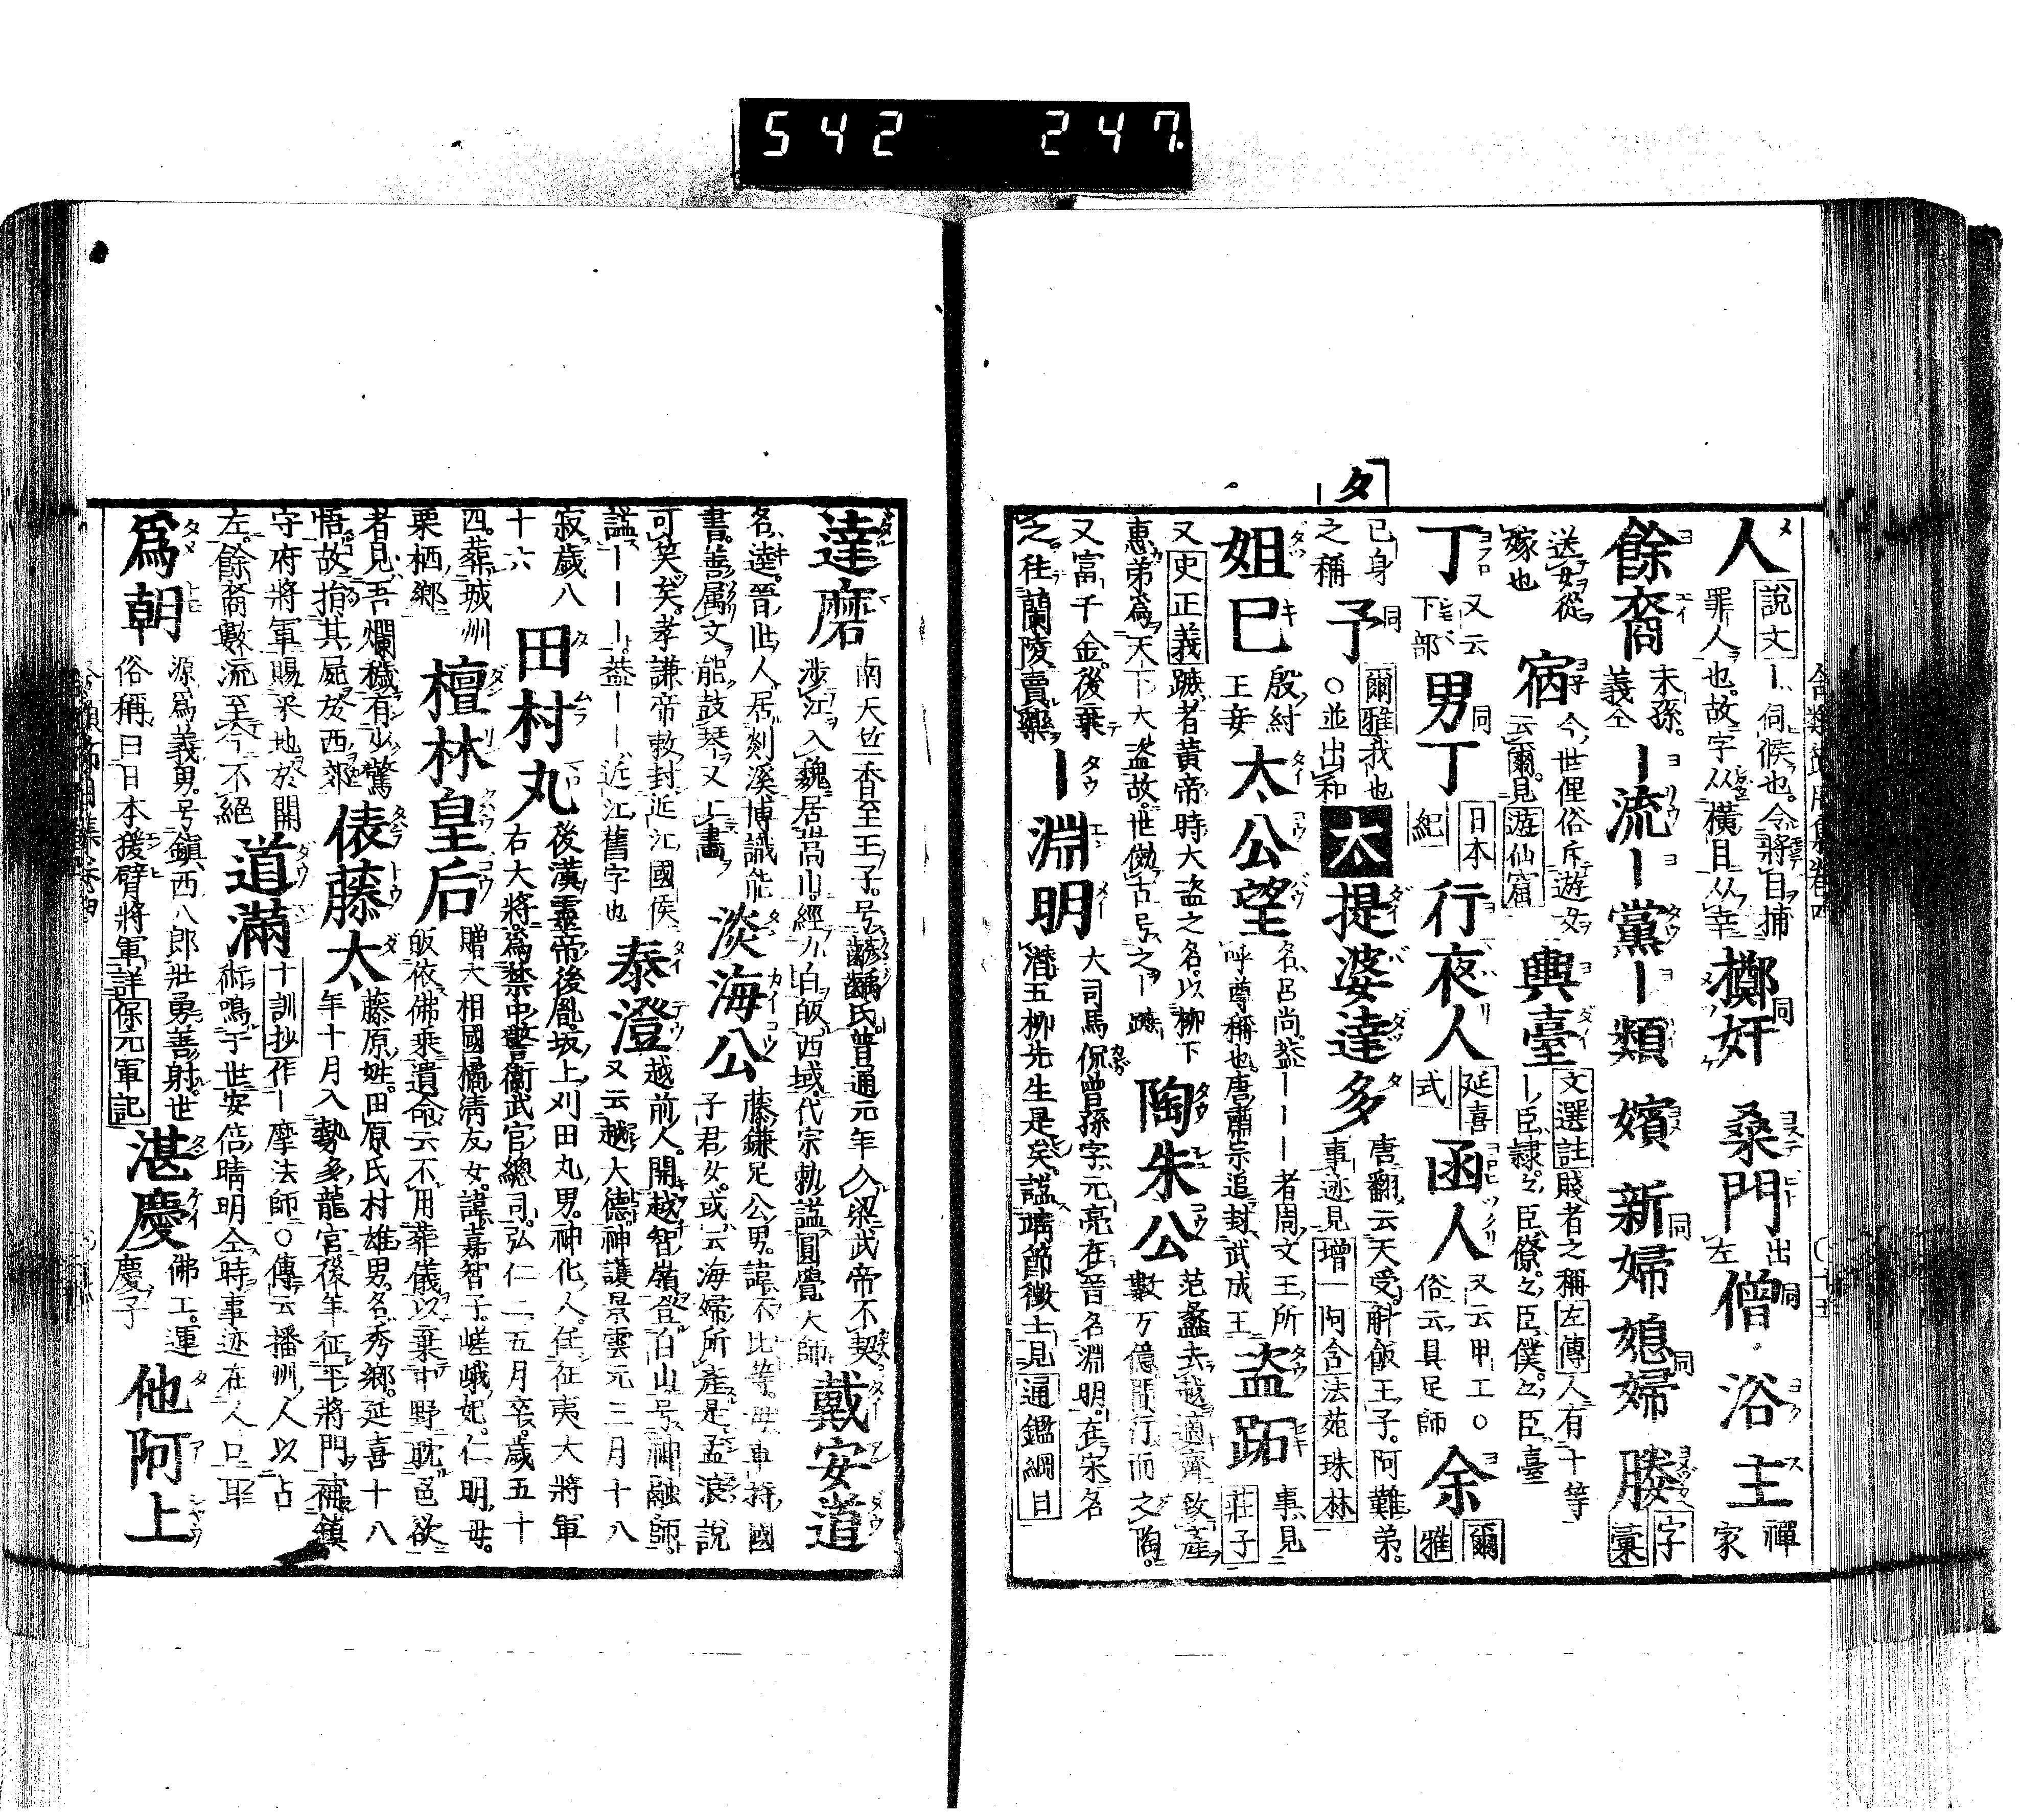 542 247.
タ
人 説文ー伺候也。令將自捕罪人也。故字从横目从幸 擲奸同 桑門出左 僧同 浴主禪家
餘裔末孫。義仝 ー流 ー黨 ー類 嬪 新婦同 媳婦同 媵字彙
送女從嫁也 宿今世俚俗斥遊女云爾。見遊仙窟 輿臺文選註賤者之稱左傳人有十等ー臣隷。々臣僚。々臣僕。々臣臺
丁又云下部 男丁同日本紀 行夜人延喜式 函人又云甲工○俗云具足師 余爾雅
已身之稱 予同爾雅我也○並出和 太 提婆達多唐翻云天受。斛飯王子。阿難弟。事迹見增一阿含法苑珠林
妲己殷紂王妾 太公望名呂尚。蓋ーーー者周文王所呼尊稱也唐肅宗追封武成王 盗跖事見莊子
又史正義蹠者黄帝時大盗之名。以柳下惠弟為天下大盗故。世倣古号之ー蹠 陶朱公范蠡去越適齊致產數万億間行而之陶。
又富千金。後乘之往蘭陵賣藥 ー淵明大司馬侃曾孫字元亮。在晉名淵明。在宋名潛五柳先生是矣。謚靖節徴士見通鑑綱目
達磨南天竺香至王子。号齡齲氏普通元年入梁武帝不契渉江入魏居嵩山。經九白皈西域。代宗勅謚圓覺大師 戴安道
名逵。晉世人居剡溪博識能書。善属文能鼓琴又上畫 淡海公藤鎌足公男。諱不比等。國子君女。或云海婦所產是孟浪說
可笑矣。孝謙帝敕封近江國侯謚ーーー。蓋ーー近江舊字也 泰澄越前人。開越智嶺登白山号神融師。又云越大德神護景雲元三月十八
寂歳八十六 田村丸後漢靈帝後胤。坂上刈田丸男。神化人。任征夷大將軍右大將。為禁中警衞武官總司。弘仁二五月卒。歳五十
四。葬城州栗栖郷 檀林皇后贈大相國橘淸友女。諱嘉智子。嵯峨妃。仁明母。皈依佛乘遺命云不用葬儀以棄中野耽色欲
者見吾爛穢有少驚悟故指其屍於西郊 俵藤太藤原姓。田原氏村雄男。名秀郷。延喜十八年十月入勢多龍宮。後年征平將門補鎮
守府將軍賜采地於開左。餘裔數流至今不絕 道滿十訓抄作ー摩法師○傳云播州人以占術鳴于世安倍晴明仝時事迹在人口耳
為朝源為義男。号鎮西八郎壯勇善射。世俗稱曰日本援臂將軍詳保元軍記 湛慶佛工。運慶子 他阿上